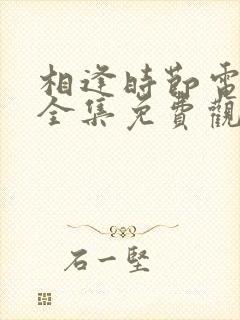 相逢時節電
全集免費觀
石一堅